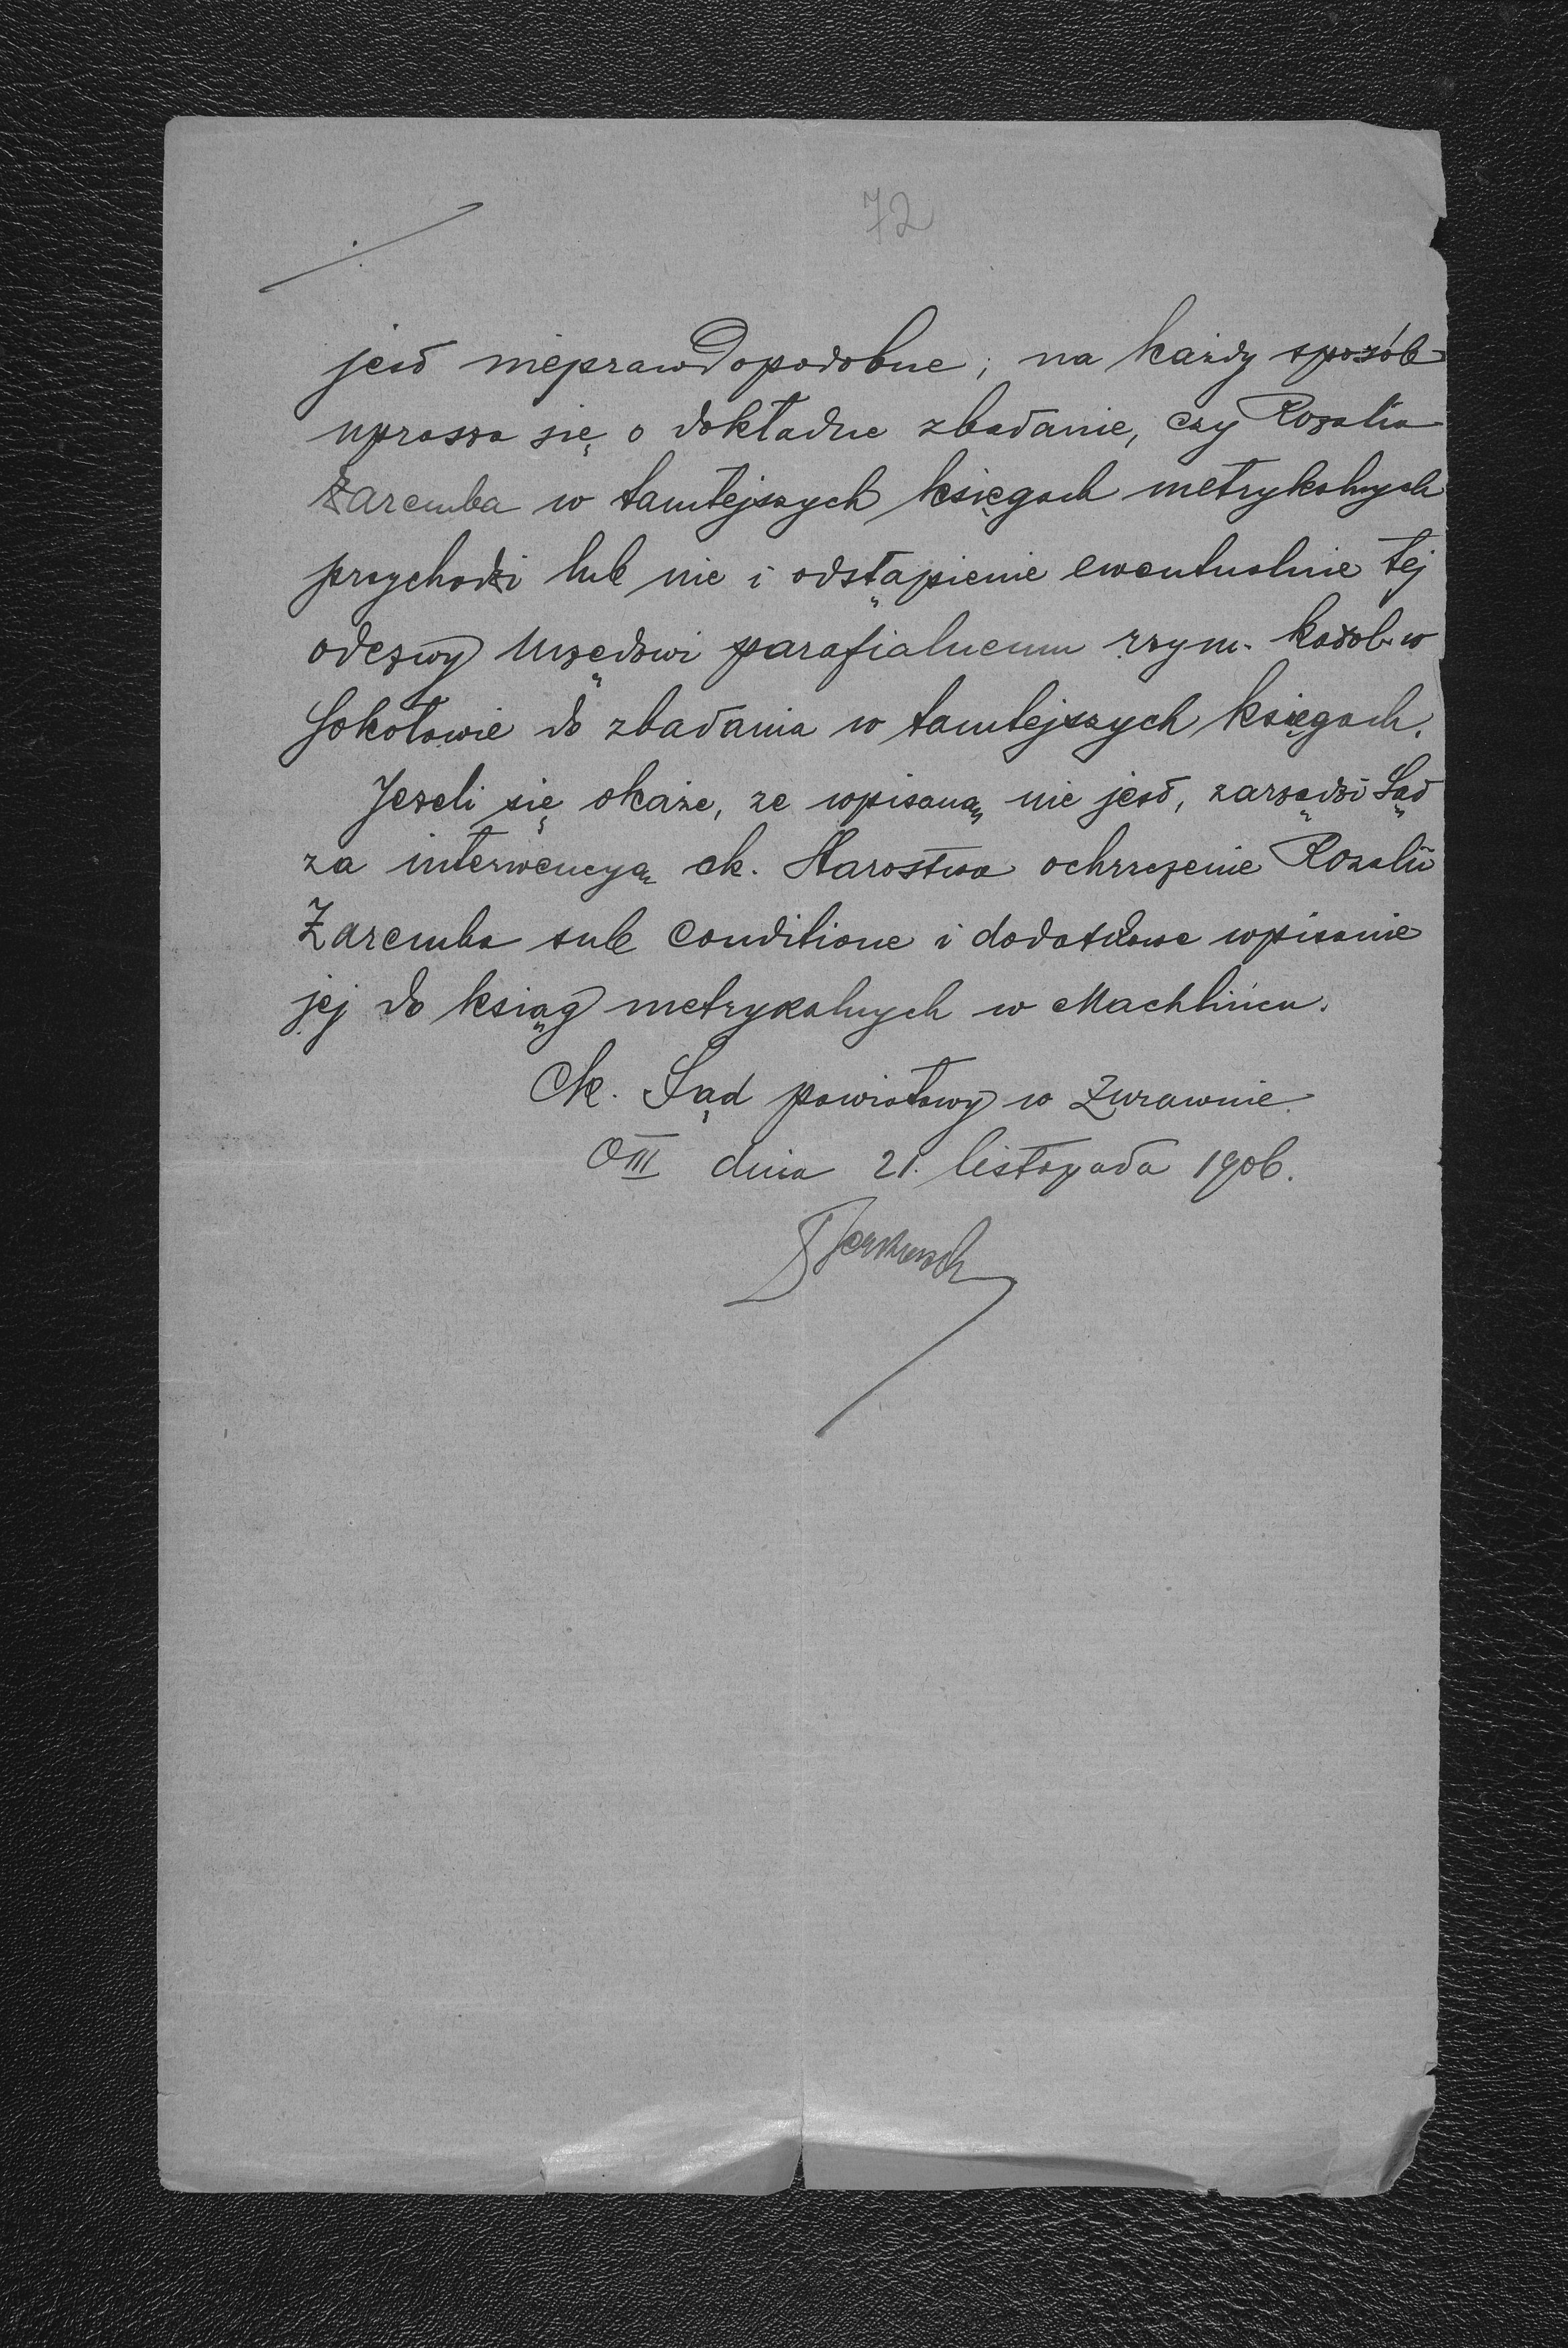 72
jest nieprawdopodobne; na każdy sposób
uprasza się o dokładne zbadanie, czy Rozalia
Zaremba w tamtejszych księgach metrykalnych
przychodzi lub nie i odstąpienie ewentualnie tej
odezwy Urzędowi parafialnemu rzym. katol. w
Sokołowie do zbadania w tamtejszych księgach.
Jeżeli się okaże, że wpisaną nie jest, zarządzi Sąd
za interwencyą ck. Starostwa ochrzczenie Rozalii
Zaremba sub conditione i dodatkowe wpisanie
jej do ksiąg metrykalnych w Machlińcu.
Ck. Sąd powiatowy w Żurawnie
O III dnia 21. listopada 1906.